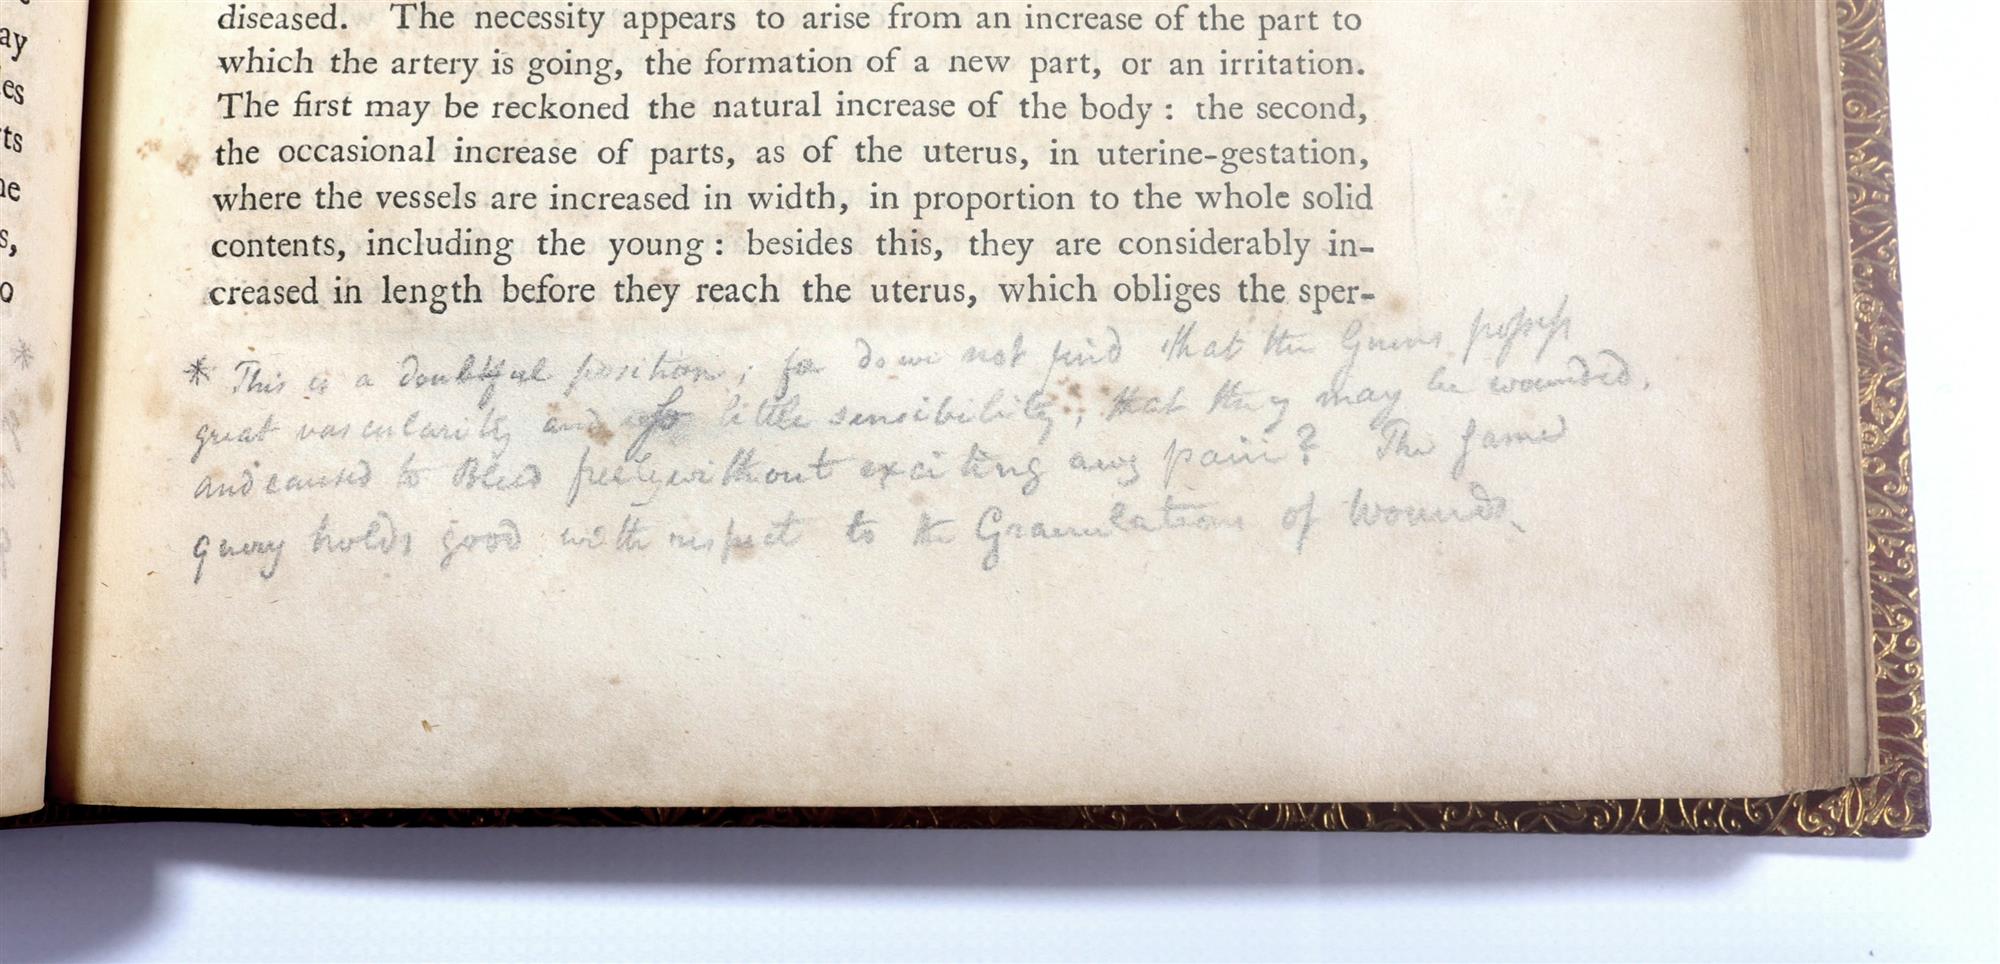 ay
es
ts
ne
s,
o
diseased. The necessity appears to arise from an increase of the part to
which the artery is going, the formation of a new part, or an irritation.
The first may be reckoned the natural increase of the body : the second,
the occasional increase of parts, as of the uterus, in uterine-gestation,
where the vessels are increased in width, in proportion to the whole solid
contents, including the young : besides this, they are considerably in-
creased in length before they reach the uterus, which obliges the sper-
* This is a doubtful position; for do we not find that the Gums possess
great vascularity and so little sensibility, that they may be wounded,
and caused to Bleed freely without exciting any pain? The same
query holds good with respect to the Granulations of Wounds.